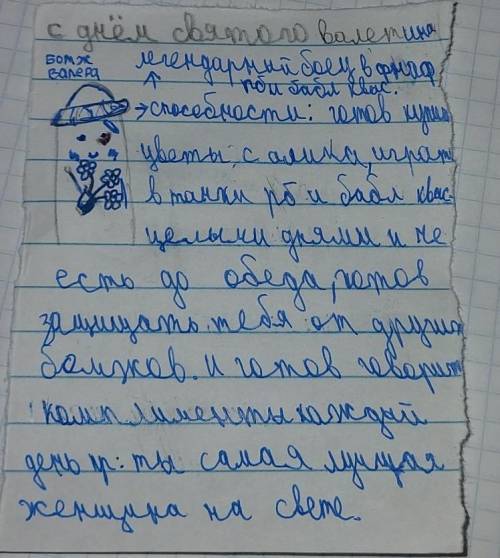 с днём святого валетина
бомж валера
легендарный боец в фнаф
рб и бабл квас.
→способности: готов купить
цветы, с алика, играть
в танки рб и бабл квас
целыми днями и не
есть до обеда, готов
защищать тебя от других
бомжов. и готов говорить
комплименты каждый
день пр: ты самая лучшая
женщина на свете.